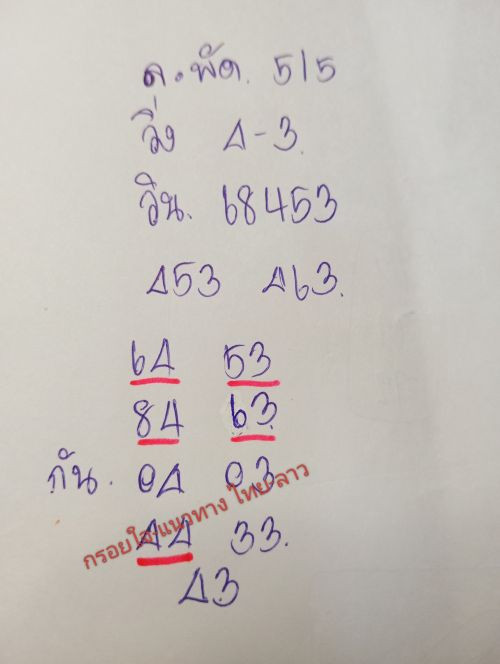 ล.พัด. 515
วิ่ง 4-3.
วิน. 68453
453 463.
64 53
84 63
กัน. 04 03
กรอยใจแนวทาง ไทย ลาว
44 33.
43